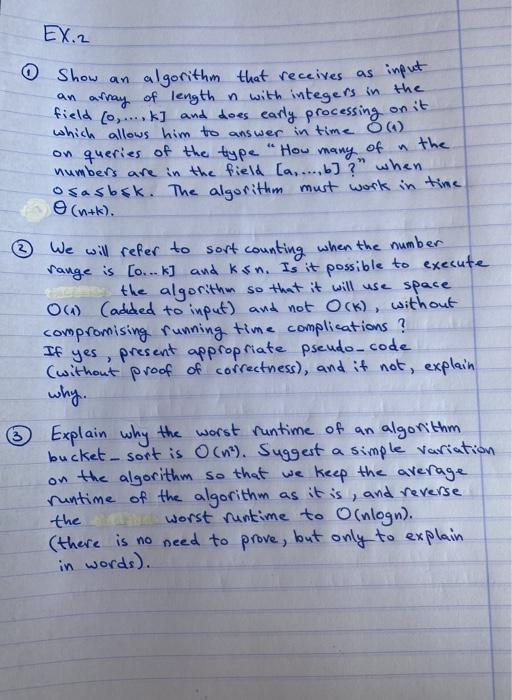 EX.2
① Show an algorithm that receives as input
an array of length n with integers in the
field [0,...,k] and does early processing on it
which allows him to answer in time O(1)
on queries of the type "How many of n the
numbers are in the field [a,...,b]?" when
0≤a≤b≤k. The algorithm must work in time
Θ(n+k).
② We will refer to sort counting when the number
range is [0...k] and k≤n. Is it possible to execute
the algorithm so that it will use space
O(1) (added to input) and not O(k), without
compromising running time complications?
If yes, present appropriate pseudo-code
(without proof of correctness), and if not, explain
why.
③ Explain why the worst runtime of an algorithm
bucket-sort is O(n²). Suggest a simple variation
on the algorithm so that we keep the average
runtime of the algorithm as it is, and reverse
the worst runtime to O(nlogn).
(there is no need to prove, but only to explain
in words).